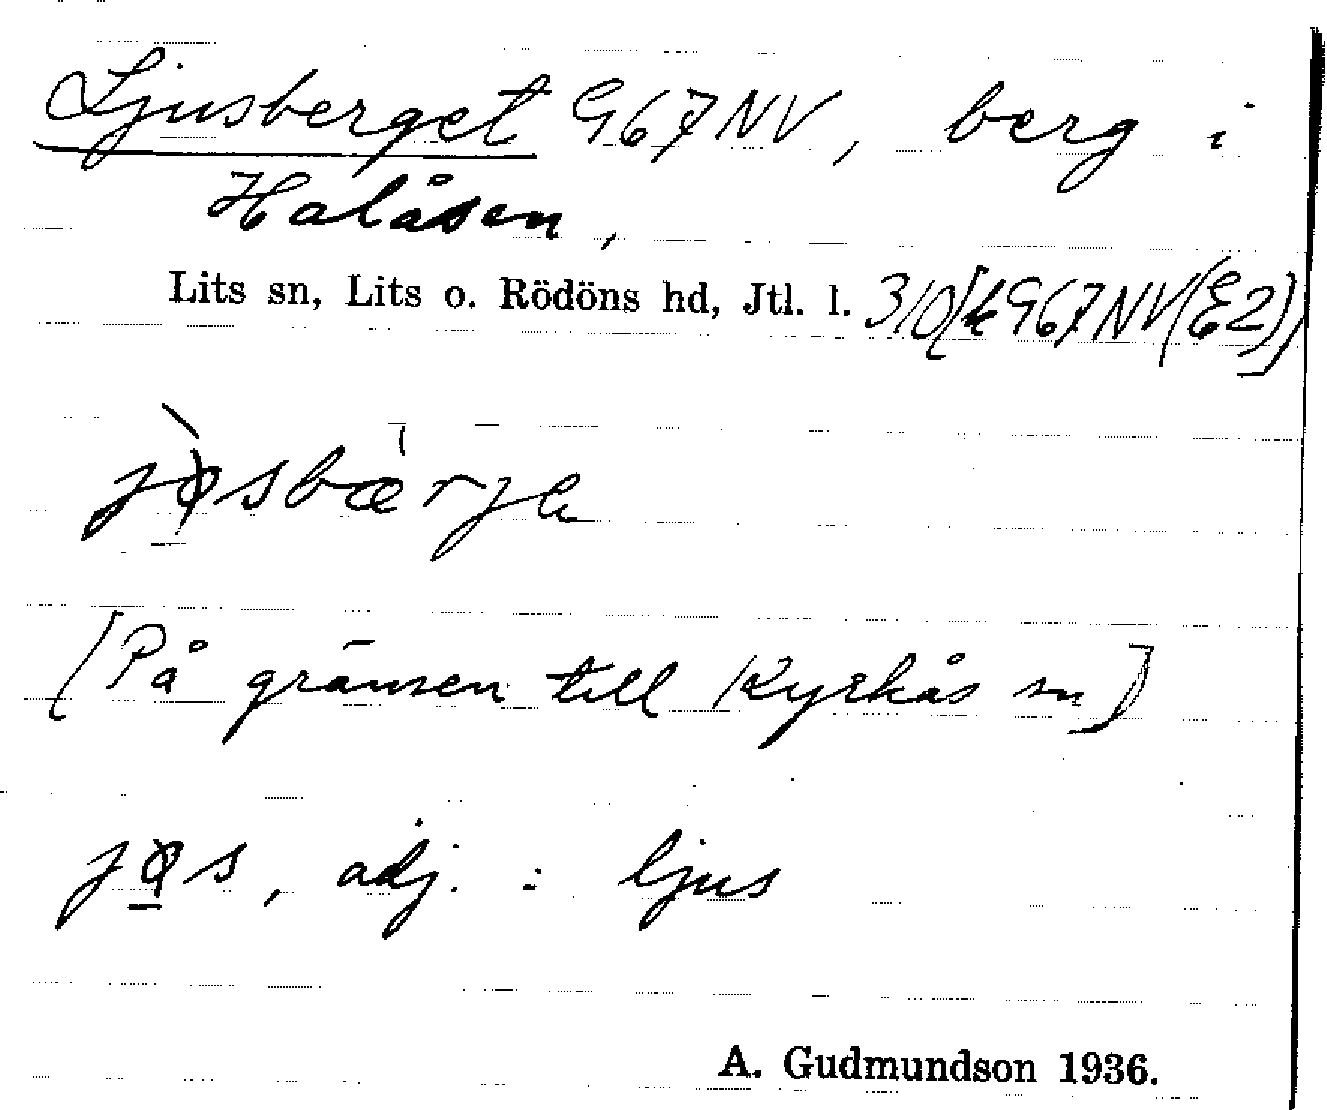 Ljusberget G67NV, berg i
Halåsen,
Lits sn, Lits o. Rödöns hd, Jtl. l. 3/0[k G67NV(E2)]
jøsbærje
[På gränsen till Kyrkås sn]
jøs, adj. : ljus
A. Gudmundson 1936.